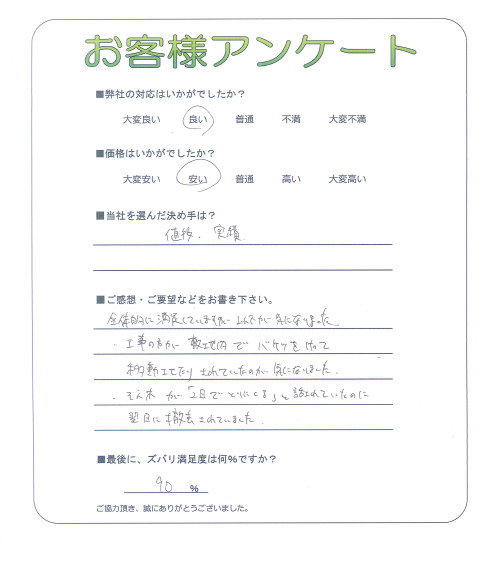 お客様アンケート
■弊社の対応はいかがでしたか？
大変良い 良い 普通 不満 大変不満
■価格はいかがでしたか？
大変安い 安い 普通 高い 大変高い
■当社を選んだ決め手は？
値段、実績
■ご感想・ご要望などをお書き下さい。
全体的に満足していますが 気になりました
・工事の方が 敷地内で バケツを
移動 されていたのが気になりました。
・ が「2日で 」と言われていたのに
翌日に撤去されていました。
■最後に、ズバリ満足度は何%ですか？
90 %
ご協力頂き、誠にありがとうございました。